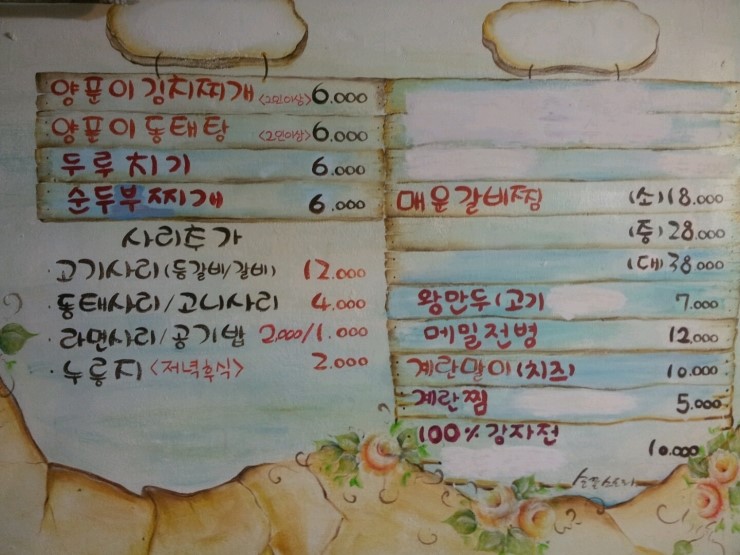 양푼이김치찌개 <2인이상> 6.000
양푼이동태탕 <2인이상> 6.000
두루치기 6.000
순두부찌개 6.000
사리추가
·고기사리(등갈비/갈비) 12.000
·동태사리/고니사리 4.000
·라면사리/공기밥 2.000/1.000
·누룽지<저녁후식> 2.000
매운갈비찜 (소)18.000
(중)28.000
(대)38.000
왕만두(고기 7.000
메밀전병 12.000
계란말이(치즈) 10.000
계란찜 5.000
100%감자전
10.000